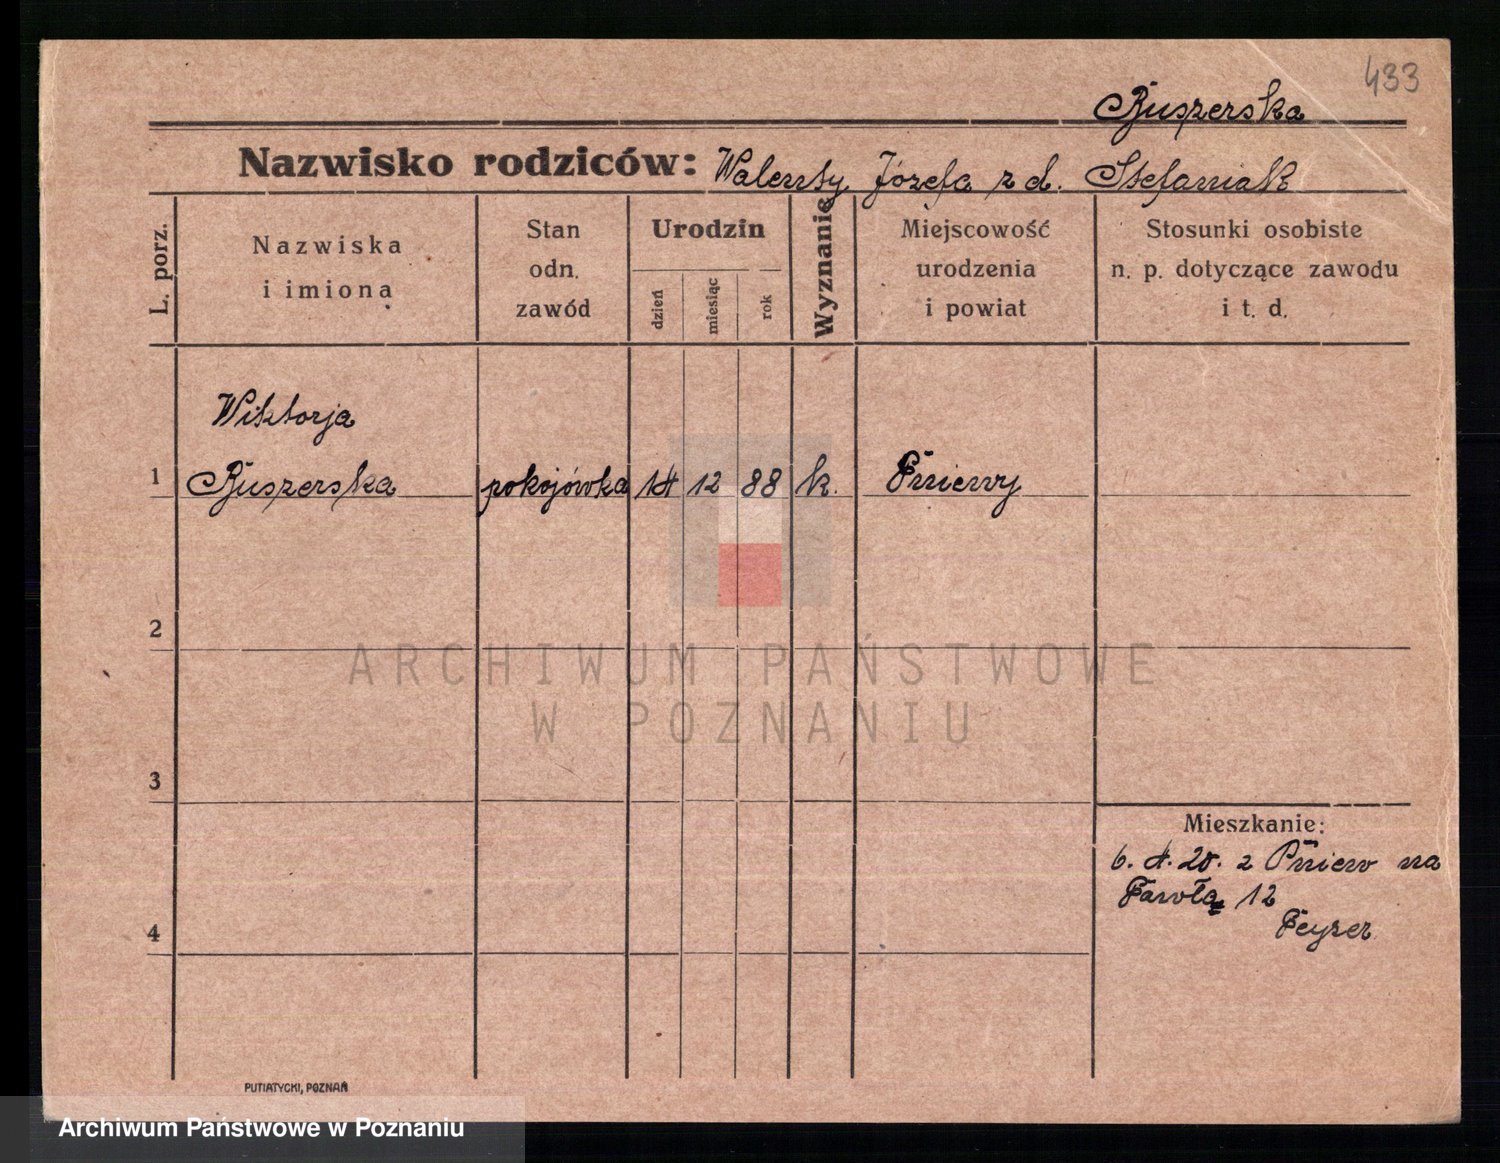 433
Ruszerska
Nazwisko rodziców: Walenty Józefa z d. Stefaniak
L. porz.
Nazwiska
i imiona
Stan
odn.
zawód
Urodzin
dzień
miesiąc
rok
Wyznanie
Miejscowość
urodzenia
i powiat
Stosunki osobiste
n. p. dotyczące zawodu
i t. d.
Wiktorja
1 Ruszerska pokojówka 14 12 88 k. Pniewy
2
ARCHIWUM PAŃSTWOWE
W POZNANIU
3
Mieszkanie:
6. 4. 20. z Pniew na
12
4
PUTIATYCKI, POZNAŃ
Archiwum Państwowe w Poznaniu